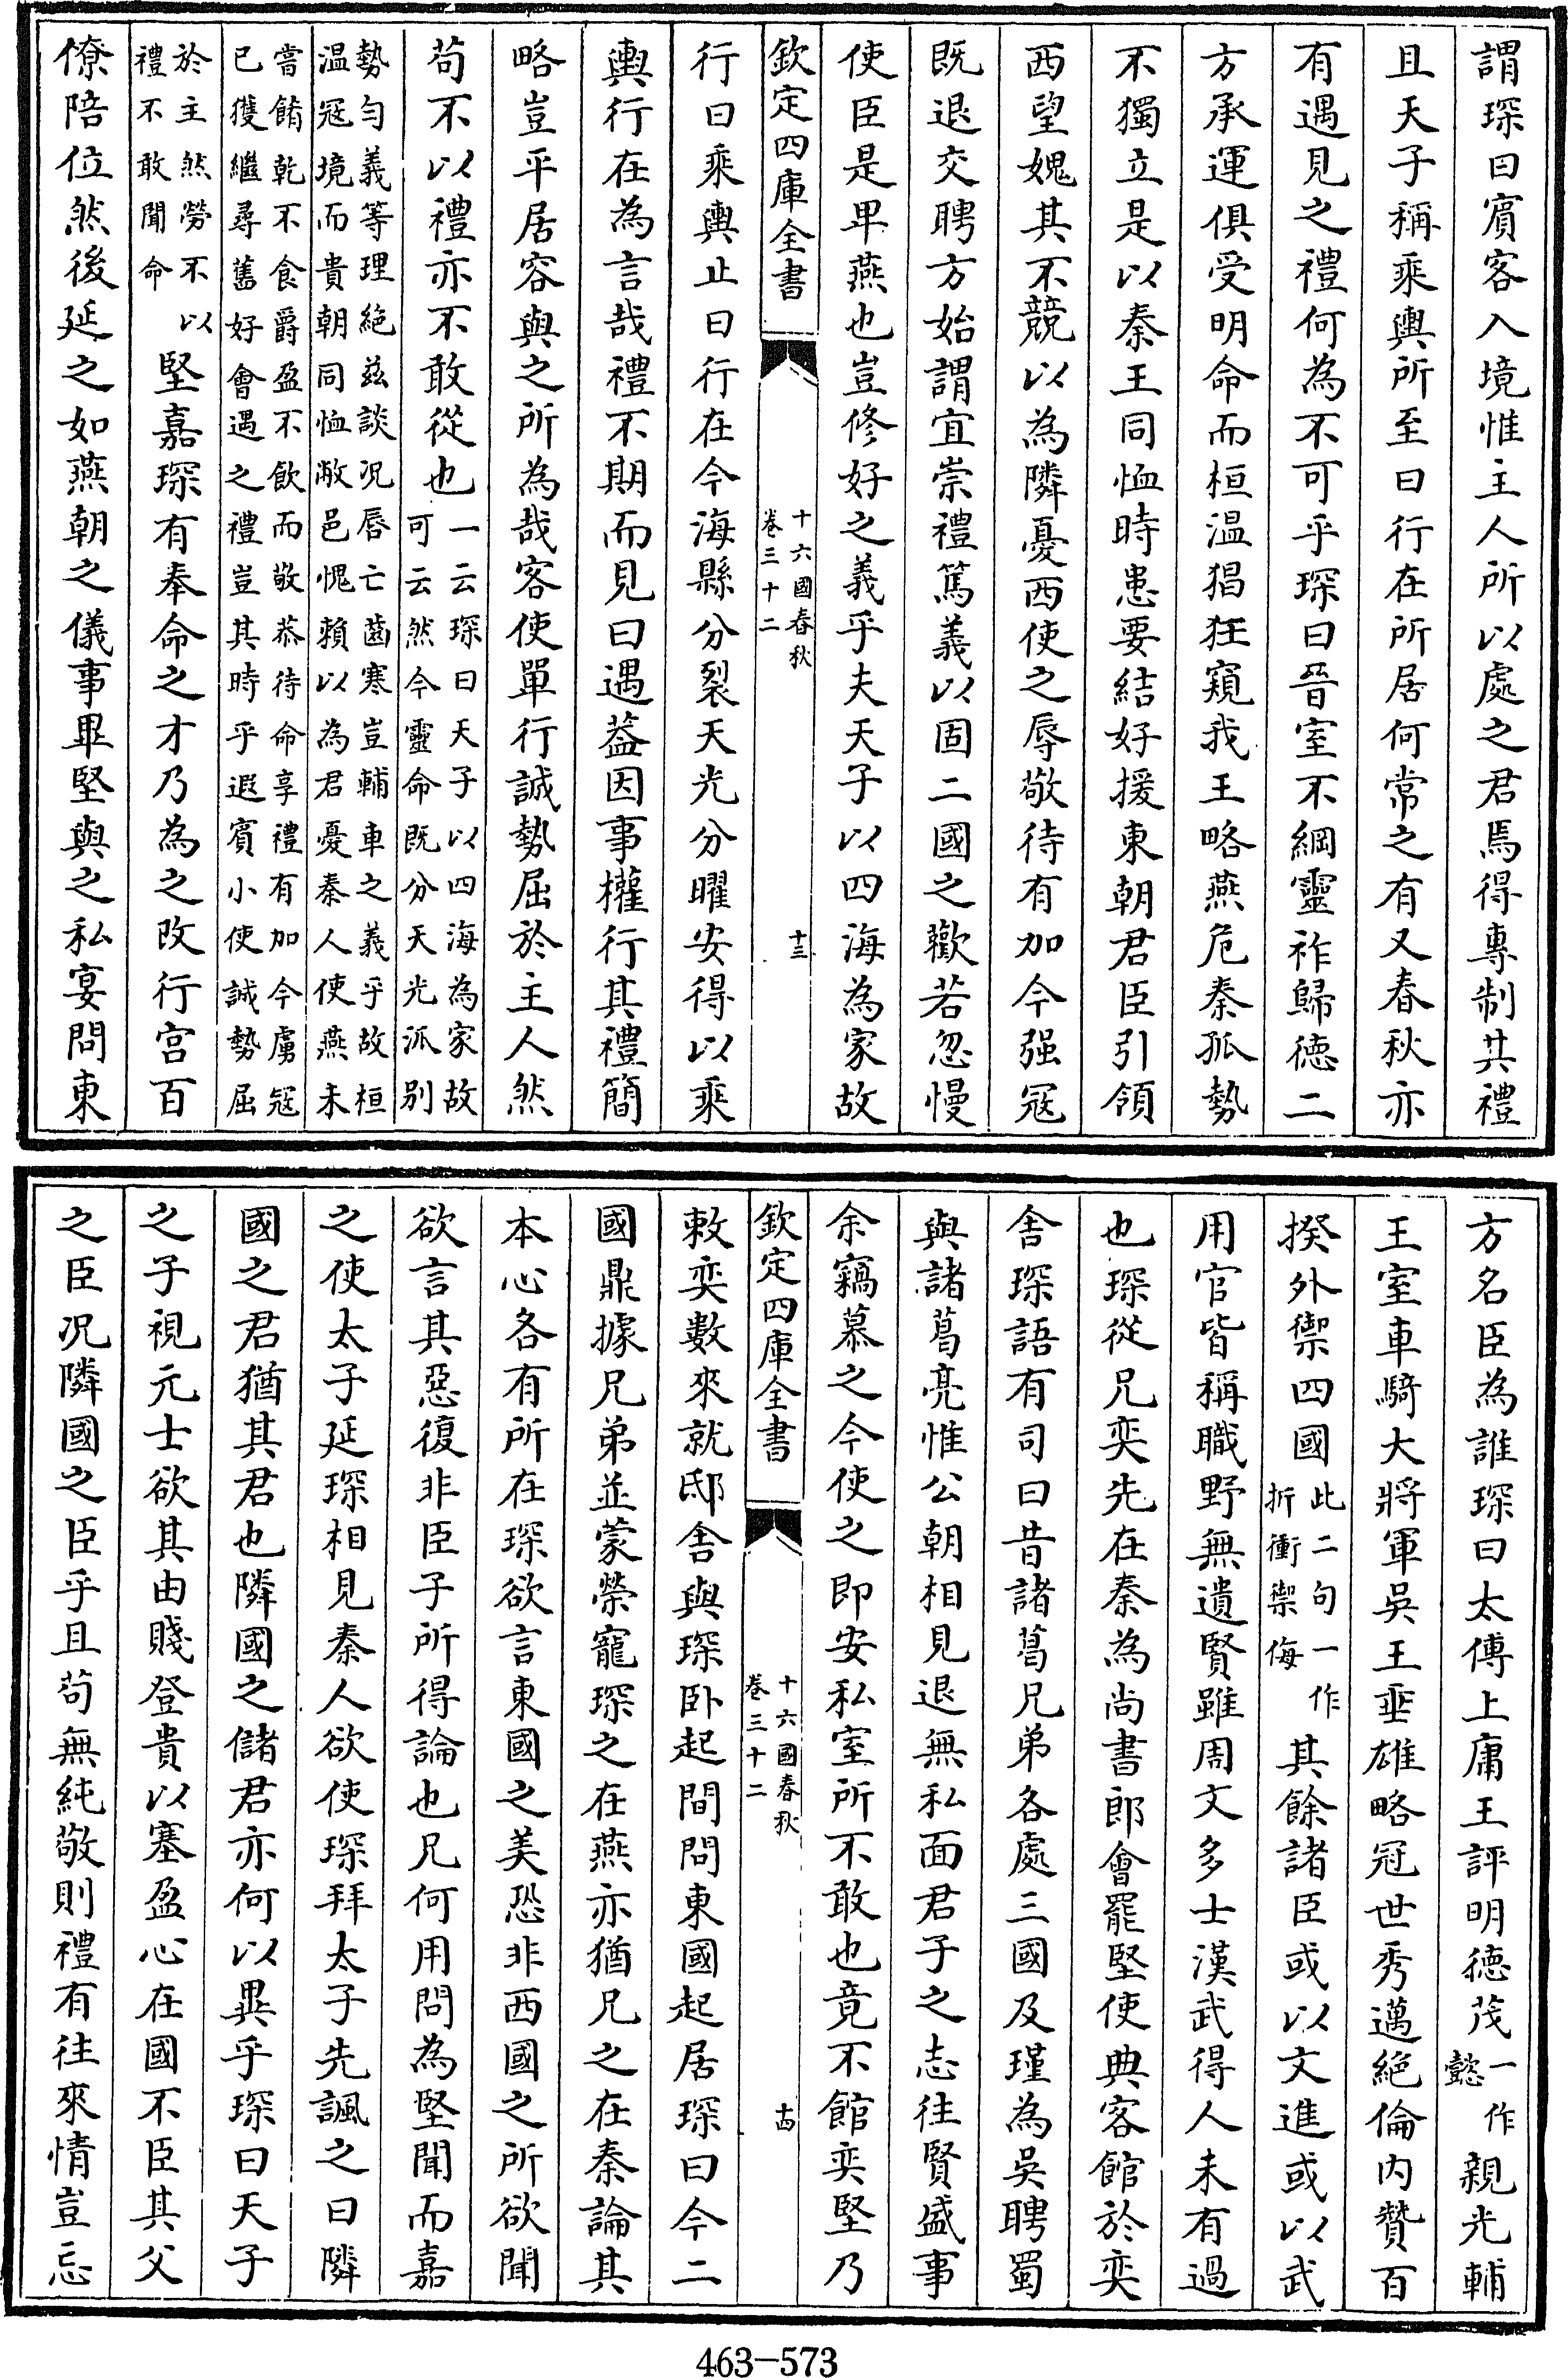 謂琛曰賓客入境惟主人所以處之君焉得專制其禮
且天子稱乘輿所至曰行在所居何常之有又春秋亦
有遇見之禮何為不可乎琛曰晉室不綱靈祚歸德二
方承運俱受明命而桓温猖狂窺我王略燕危秦孤勢
不獨立是以秦王同恤時患要結好援東朝君臣引領
西望媿其不競以為隣憂西使之辱敬待有加今强冦
既退交聘方始謂宜崇禮篤義以固二國之歡若忽慢
使臣是卑燕也豈修好之義乎夫天子以四海為家故
欽定四庫全書
十六國春秋
卷三十二
十三
行曰乘輿止曰行在今海縣分裂天光分曜安得以乘
輿行在為言哉禮不期而見曰遇葢因事權行其禮簡
略豈平居容與之所為哉客使單行誠勢屈於主人然
苟不以禮亦不敢從也
一云琛曰天子以四海為家故
可云然今靈命既分天光派别
勢勻義等理絶兹談况唇亡齒寒豈輔車之義乎故桓
温冦境而貴朝同恤敝邑愧賴以為君憂秦人使燕未
嘗餚乾不食爵盈不飲而敬恭待命享禮有加今虜冦
已獲繼尋舊好會遇之禮豈其時乎遐賓小使誠勢屈
於主然勞不以
禮不敢聞命
堅嘉琛有奉命之才乃為之改行宫百
僚陪位然後延之如燕朝之儀事畢堅與之私宴問東
方名臣為誰琛曰太傅上庸王評明徳茂
一作
懿
親光輔
王室車騎大將軍吳王垂雄略冠世秀邁絶倫内贊百
揆外禦四國
此二句一作
折衝禦侮
其餘諸臣或以文進或以武
用官皆稱職野無遺賢雖周文多士漢武得人未有過
也琛從兄奕先在秦為尚書郎會罷堅使典客館於奕
舍琛語有司曰昔諸葛兄弟各處三國及瑾為吳聘蜀
與諸葛亮惟公朝相見退無私面君子之志往賢盛事
余竊慕之今使之即安私室所不敢也竟不館奕堅乃
欽定四庫全書
十六國春秋
卷三十二
十四
敕奕數來就邸舍與琛卧起間問東國起居琛曰今二
國鼎據兄弟並蒙榮寵琛之在燕亦猶兄之在秦論其
本心各有所在琛欲言東國之美恐非西國之所欲聞
欲言其惡復非臣子所得論也兄何用問為堅聞而嘉
之使太子延琛相見秦人欲使琛拜太子先諷之曰隣
國之君猶其君也隣國之儲君亦何以異乎琛曰天子
之子視元士欲其由賤登貴以塞盈心在國不臣其父
之臣况隣國之臣乎且苟無純敬則禮有往來情豈忘
463-573